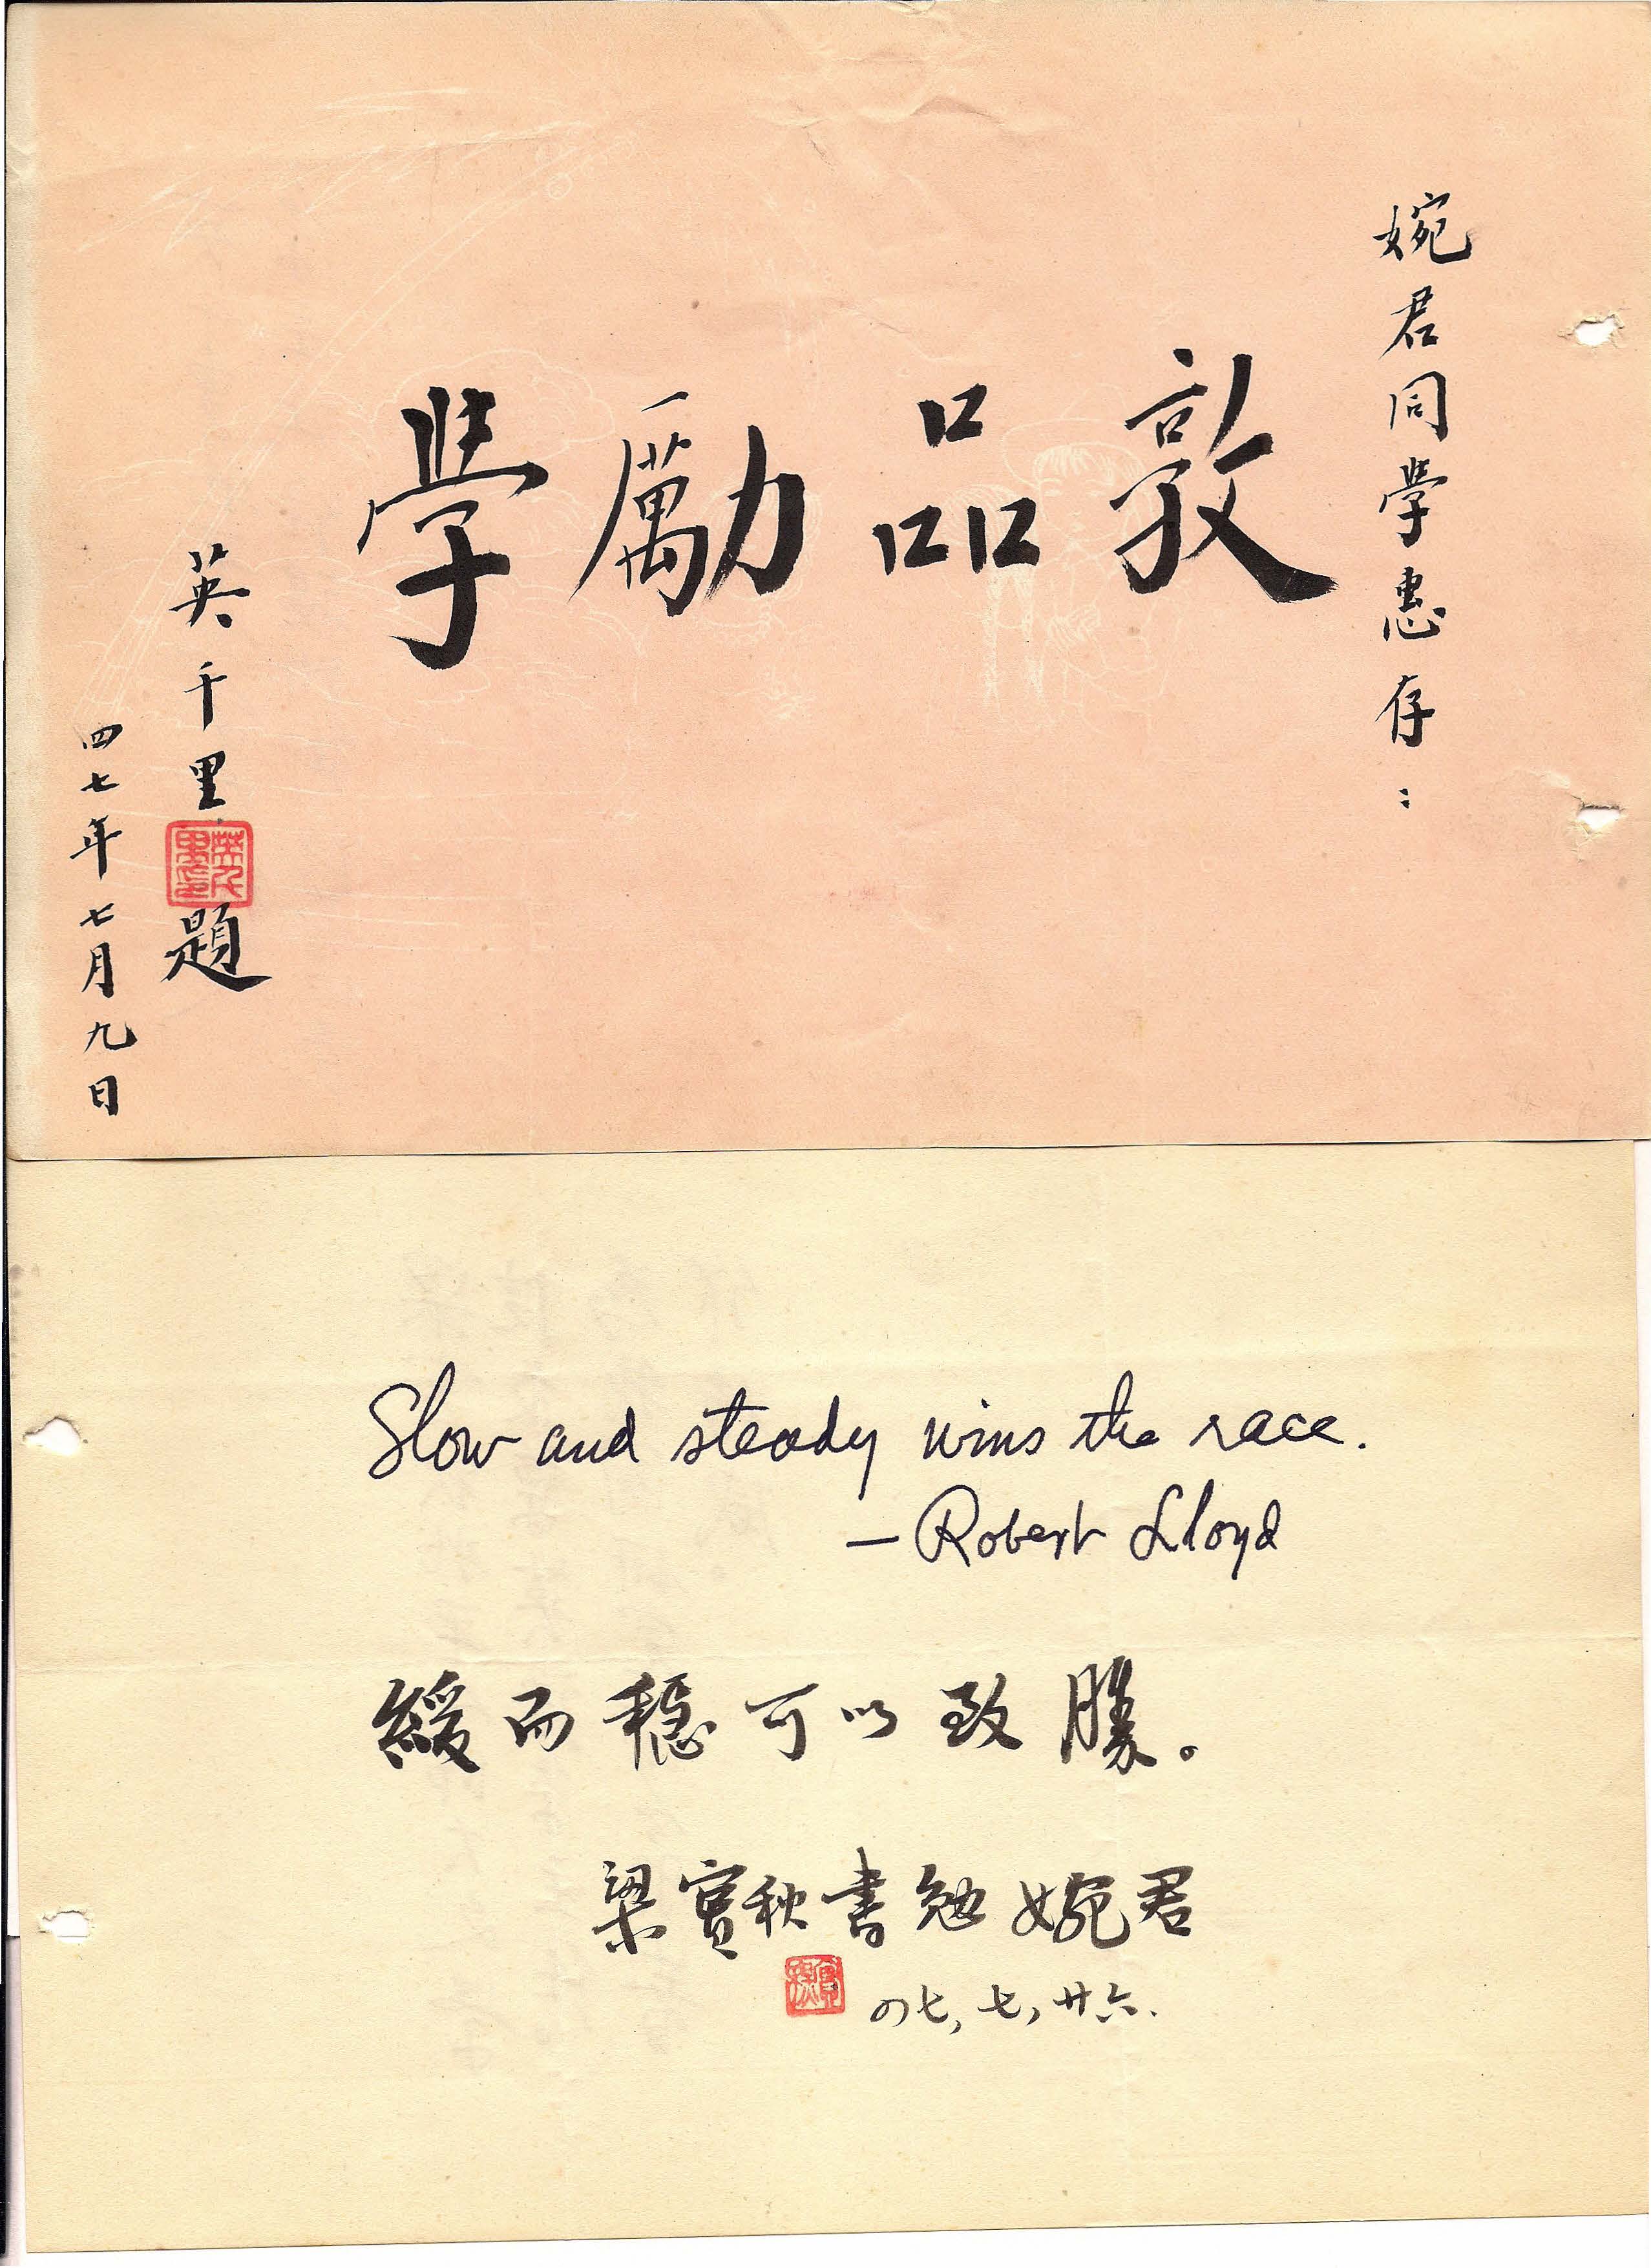 婉君同學惠存：
敦品勵學
英千里題
四七年七月九日
Slow and steady wins the race.
— Robert Lloyd
緩而穩可以致勝。
梁實秋書勉婉君
四七，七，廿六.